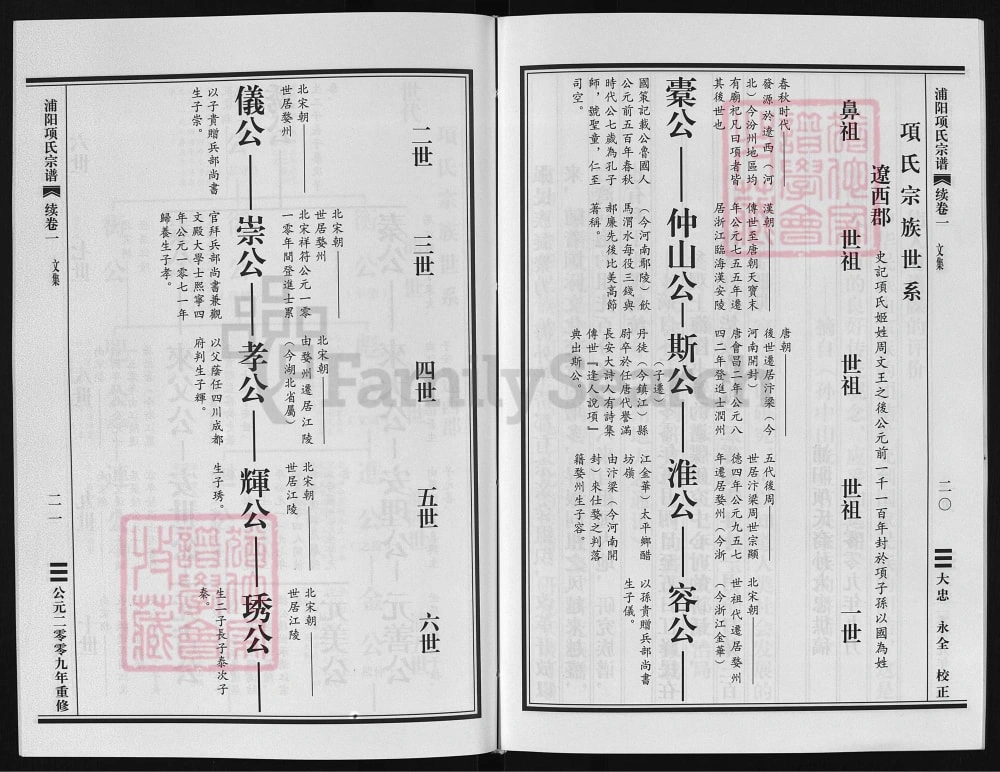 浦阳项氏宗谱
续卷一
文集
二〇
大忠 永全 校正
項氏宗族世系
遼西郡
史記項氏姬姓周文王之後公元前一千一百年封於項子孫以國為姓
鼻祖
世祖
世祖
世祖
一世
春秋时代
發源於遼西（河
北）今汾州地區均
有廟祀凡曰項者皆
其後世也
橐公
國策記載公魯國人
公元前五百年春秋
時代公七歲為孔子
師，號聖童，仁至
司空。
漢朝
傳世至唐朝天寶末
年公元七五五年遷
居浙江臨海漢安陵
仲山公
（今河南鄢陵）飲
馬渭水每役三錢與
郝廉先後比美高節
著稱。
唐朝
後世遷居汴梁（今
河南開封）
唐會昌二年公元八
四二年登進士潤州
斯公
（子遷）
丹徒（今鎮江）縣
尉卒於任唐代譽滿
長安大詩人有詩集
傳世『逢人說項』
典出斯公。
五代後周
世居汴梁周世宗顯
德四年公元九五七
年遷居婺州（今浙
淮公
江金華）太平鄉醋
坊嶺
由汴梁（今河南開
封）來仕婺之判落
籍婺州生子容。
北宋朝
世祖代遷居婺州
（今浙江金華）
容公
以孫貴贈兵部尚書
生子儀。
二世
三世
四世
五世
六世
北宋朝
世居婺州
儀公
以子貴贈兵部尚書
生子崇。
北宋朝
世居婺州
北宋祥符公元一零
一零年間登進士累
崇公
官拜兵部尚書兼觀
文殿大學士熙寧四
年公元一零七一年
歸養生子孝。
北宋朝
由婺州遷居江陵
（今湖北省屬）
孝公
以父蔭任四川成都
府判生子輝。
北宋朝
世居江陵
輝公
生子琇。
北宋朝
世居江陵
琇公
生二子長子泰次子
秦。
浦阳项氏宗谱
续卷一
文集
二一
公元二零零九年重修
FamilySearch